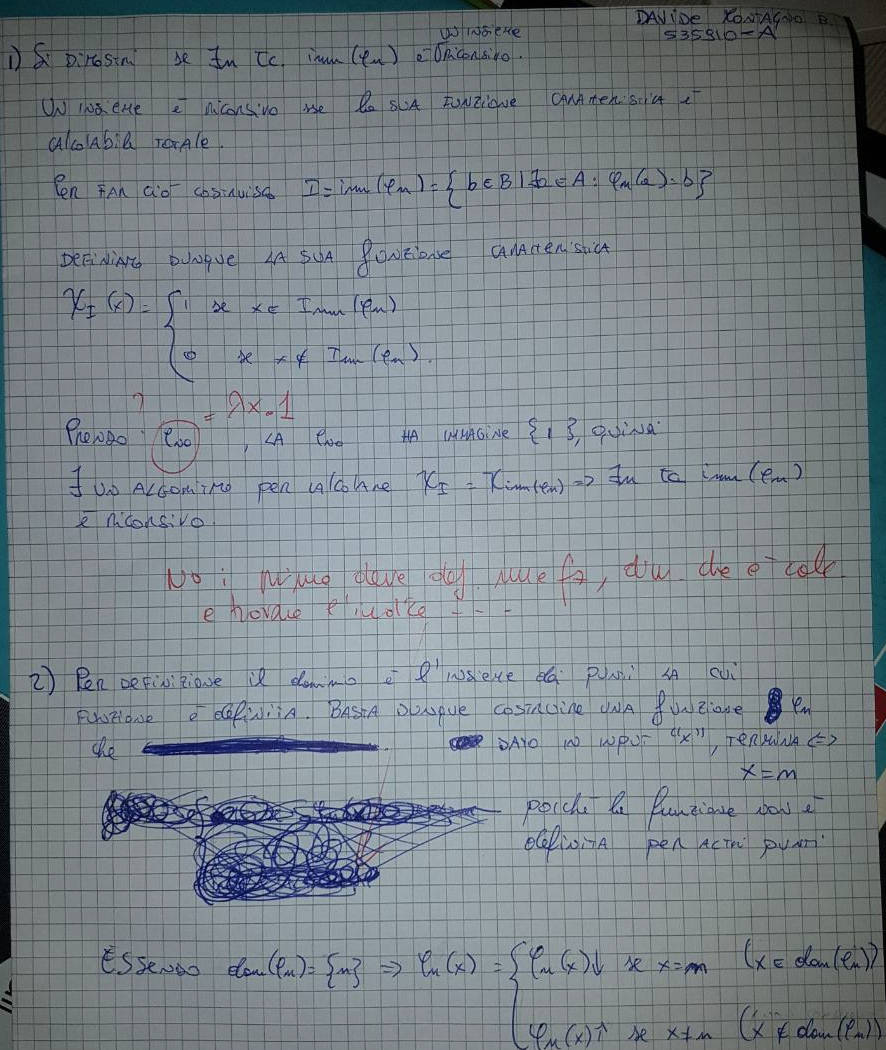 DAVIDE MONTAGNO B.
535910-A
UN INSIEME
1) Si DIMOSTRI se ∃n tc. imm(φn) è RICORSIVO.
UN INSIEME è RICORSIVO sse la SUA FUNZIONE CARATTERISTICA è
CALCOLABILE TOTALE.
PER FAR CIO' COSTRUISCO I = imm(φn) = { b ∈ B | ∃a ∈ A : φn(a) = b }
DEFINIAMO DUNQUE LA SUA FUNZIONE CARATTERISTICA
χI(x) = { 1 se x ∈ Imm(φn)
0 se x ∉ Imm(φn).
? = λx.1
PRENDO φ100, LA φ100 HA IMMAGINE {1}, QUINDI
∃ UN ALGORITMO PER CALCOLARE χI = χimm(φn) => ∃n tc imm(φn)
è RICORSIVO.
No: prima deve def. una fz, dim. che è calc.
e trovare l'indice - - -
2) PER DEFINIZIONE il dominio è l'INSIEME dei PUNTI LA CUI
FUNZIONE è DEFINITA. BASTA DUNQUE COSTRUIRE UNA FUNZIONE φn
che DATO IN INPUT "x", TERMINA <=>
x = n
poiché la funzione non è
DEFINITA PER ALTRI PUNTI
ESSENDO dom(φn) = {n} => φn(x) = { φn(x)↓ se x = n (x ∈ dom(φn))
φn(x)↑ se x ≠ n (x ∉ dom(φn))